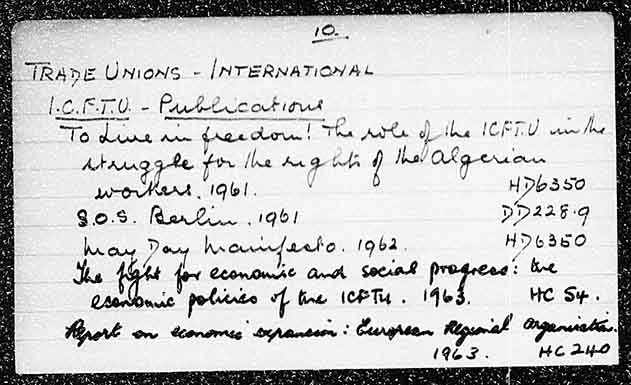 10.
TRADE UNIONS - INTERNATIONAL
I.C.F.T.U. - Publications
To Live in freedom! The role of the ICFTU in the
struggle for the rights of the Algerian
workers. 1961. HD6350
S.O.S. Berlin. 1961 DD228.9
May Day Manifesto. 1962. HD6350
The fight for economic and social progress: the
economic policies of the ICFTU. 1963. HC 54.
Report on economic expansion: European Regional Organisation.
1963. HC240